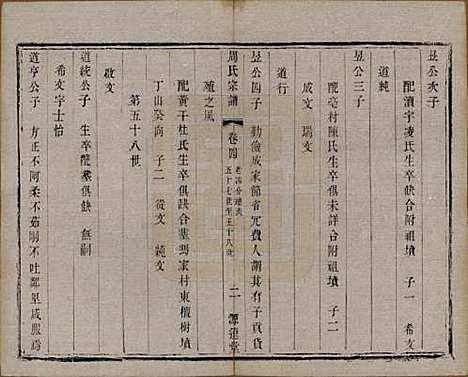 昱公次子
配瀆宇凌氏生卒俱缺合附祖墳 子一 希文
道純
昱公三子
配亳村陳氏生卒俱未詳合附祖墳 子二
成文 瑞文
道行
昱公四子 勤儉成家節省冗費人謂其有子貢貨
周氏宗譜 卷四 老四分總表 五十七世至五十八世 二 潭進堂
殖之風
配黃干杜氏生卒俱缺合墓馮家村東檀樹墳
丁山癸向 子二 從文 純文
第五十八世
啟文
道統公子 生卒配墓俱缺 無嗣
希文字士怡
道亨公子 方正不阿柔不茹剛不吐鄰里咸服焉